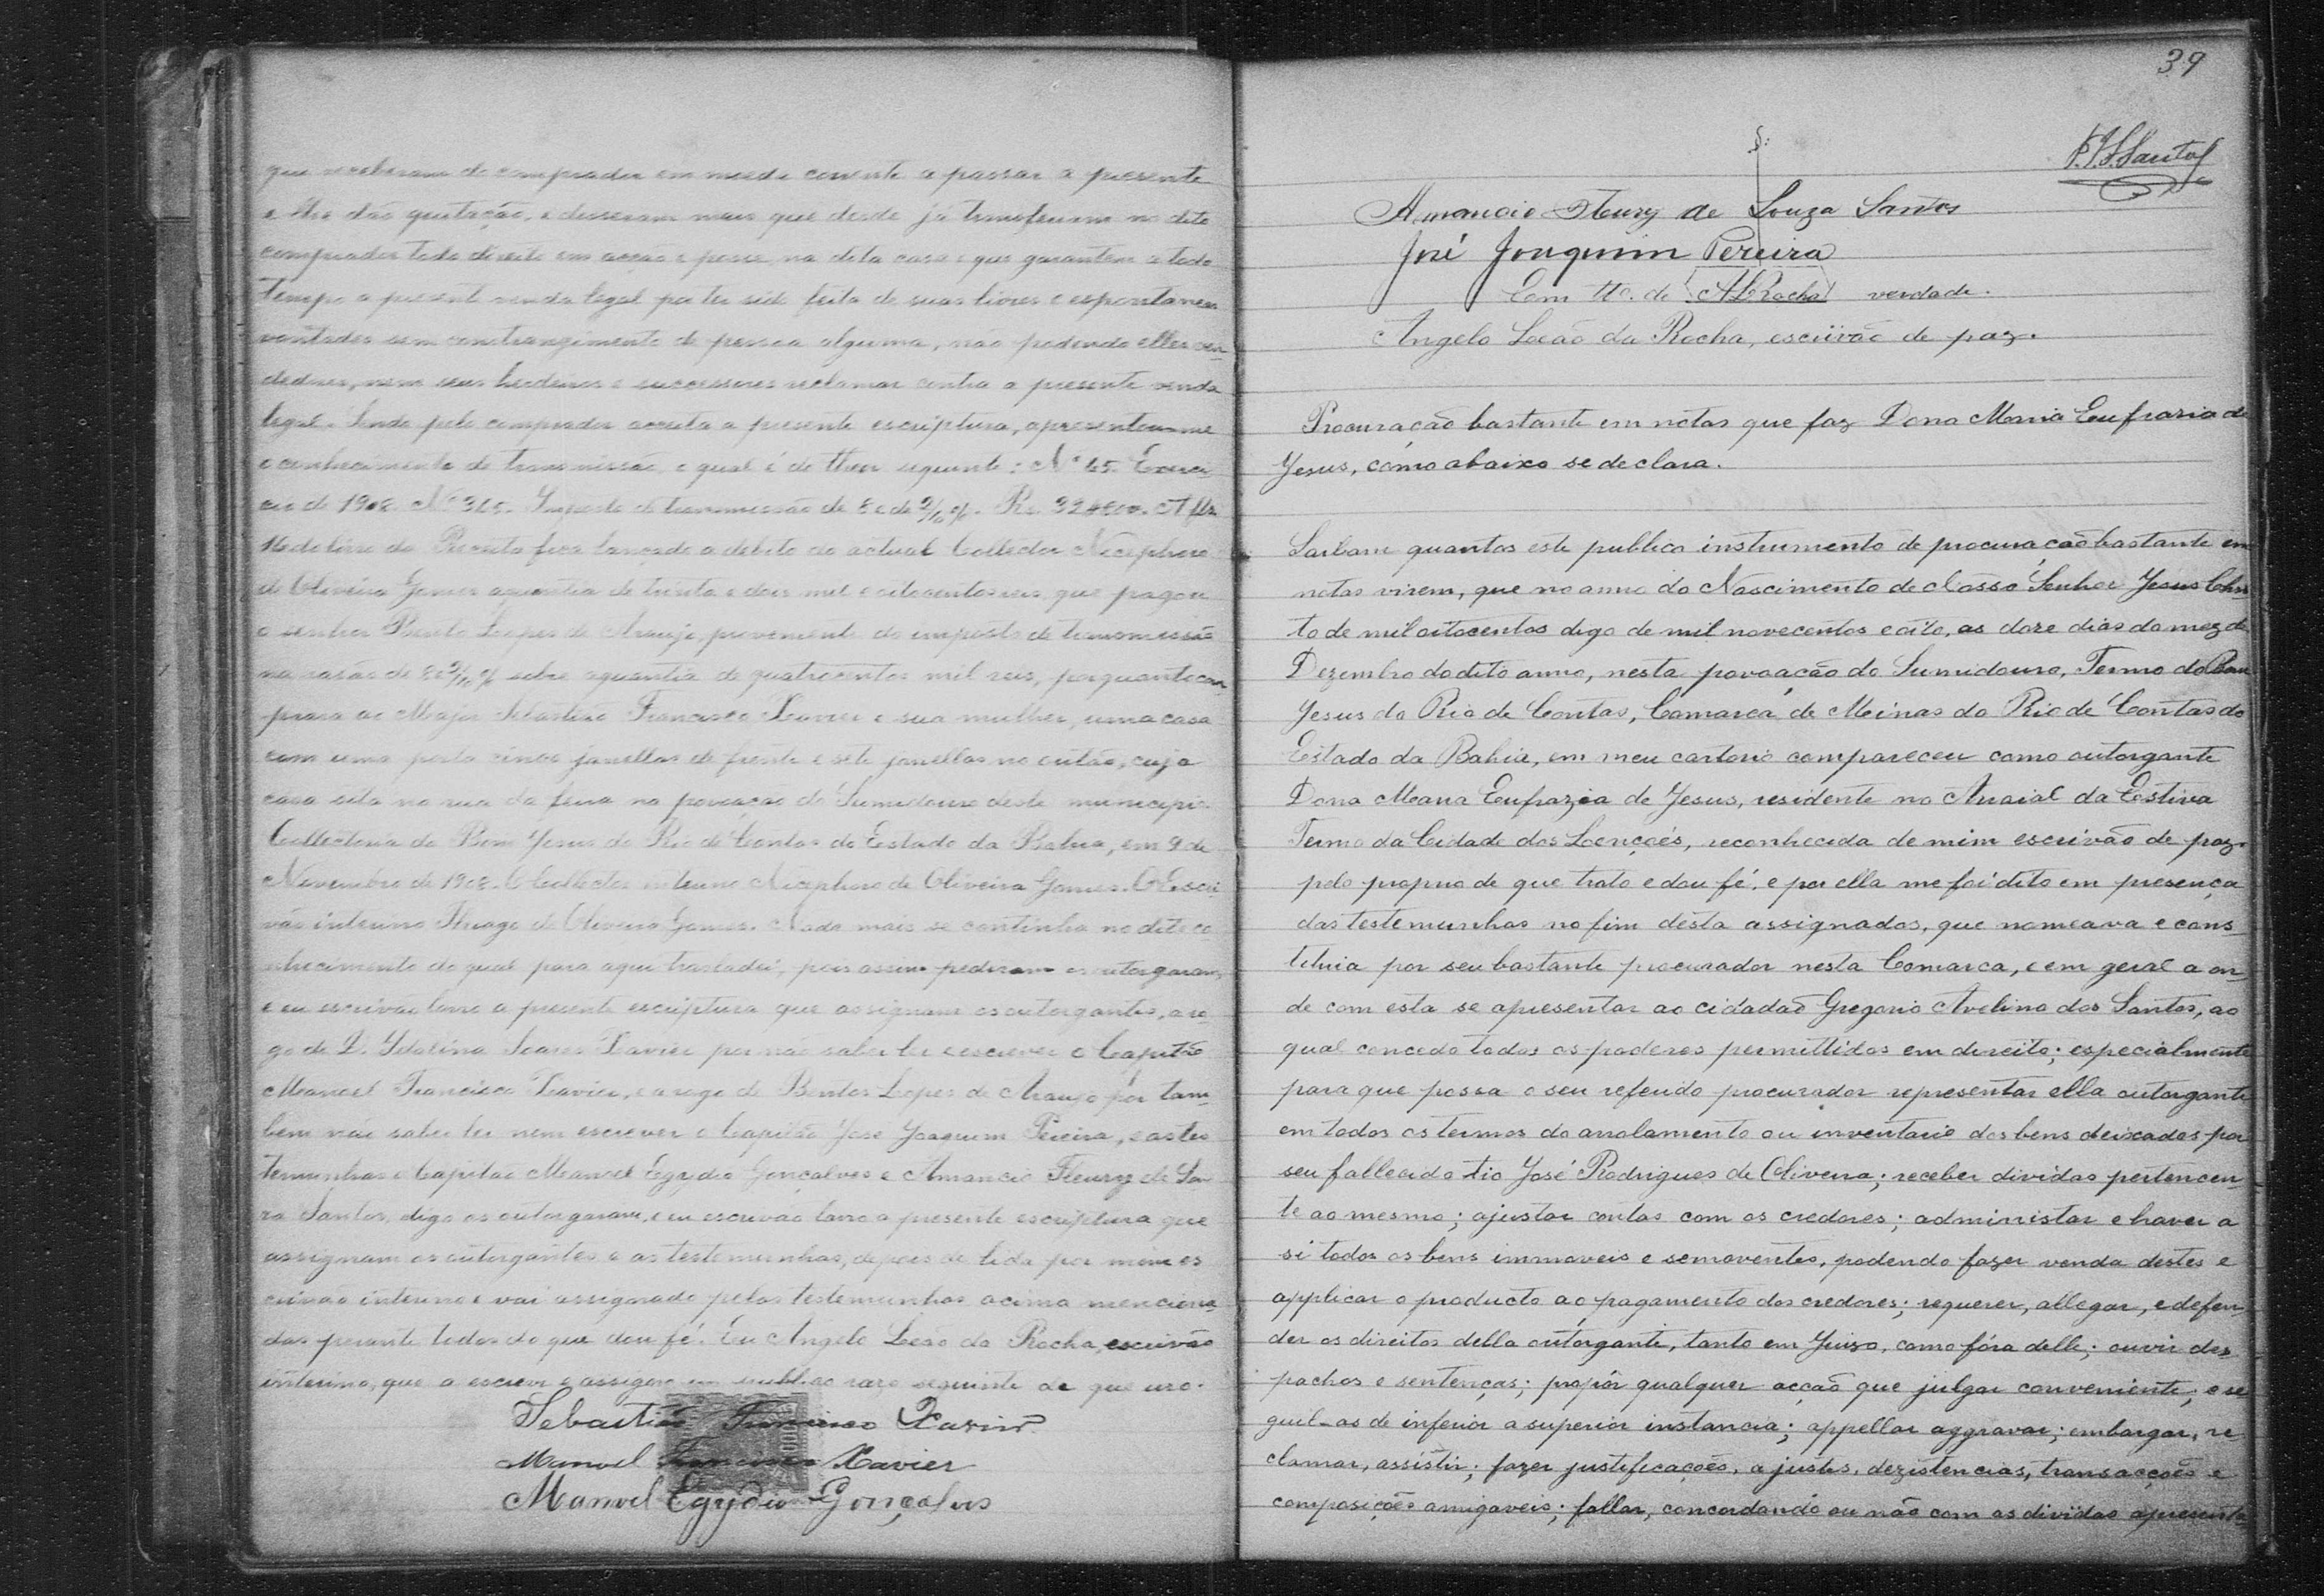 que receberam do comprador em moeda corrente a passar a presente
e lhe dão quitação, e disseram mais que desde já transferiam no dito
comprador todo direito em acção e posse, na dita casa e que garantem a todo
tempo a presente venda legal por ter sido feita de suas livres e espontaneas
vontades sem constrangimento de pessoa alguma, não podendo elles ven-
dedores, nem seus herdeiros e successores reclamar contra a presente venda
legal. Sendo pelo comprador acceita a presente escriptura, apresentou-me
o conhecimento de transmissão o qual é do theor seguinte: Nº 45. Exerci-
cio de 1908. Nº 365. Imposto de transmissão de 8 e 2/10 %. Rs. 32$800. A fls.
16 do livro da Receita fica lançado a debito do actual Collector Nicephoro
de Oliveira Gomes a quantia de trinta e dois mil e oitocentos reis, que pagou
o senhor Bento Lopes de Araujo, proveniente do imposto de transmissão
na rasão de 8 e 2/10 % sobre a quantia de quatrocentos mil reis, porquanto com-
prara ao Major Sebastião Francisco Xavier e sua mulher, uma casa
com uma porta cinco janellas de frente e sete janellas no outão, cuja
casa sita na rua da feira na povoação do Sumidouro deste municipio.
Collectoria do Bom Jesus do Rio de Contas do Estado da Bahia, em 9 de
Novembro de 1908. O Collector interino Nicephoro de Oliveira Gomes. O Escri-
vão interino Thiago de Oliveira Gomes. Nada mais se continha no dito co-
nhecimento do qual para aqui trasladei, pois assim pediram os outorgaram,
e eu escrivão lavro a presente escriptura que assignam os outorgantes, a ro-
go de D. Idalina Soares Xavier por não saber ler e escrever o Capitão
Manoel Francisco Xavier, e a rogo de Bentos Lopes de Araujo por tam-
bem não saber ler nem escrever o Capitão José Joaquim Pereira, e as tes-
temunhas o Capitão Manoel Egydio Gonçalves e Amancio Fleury de Sou-
za Santos, digo os outorgaram, e eu escrivão lavro a presente escriptura que
assignam os outorgantes e as testemunhas, depois de lida por mim es-
crivão interino e vai assignado pelas testemunhas acima menciona-
das perante todos do que dou fé. Eu Angelo Leão da Rocha, escrivão
interino, que a escrevi e assigno em publico raso seguinte de que uso.
Sebastião Francisco Xavier
Manoel Francisco Xavier
Manoel Egydio Gonçalves
39
Santos
Amancio Fleury de Souza Santos
José Joaquim Pereira
Em tto. de ALRocha verdade.
Angelo Leão da Rocha, escrivão de paz.
Procuração bastante em notas que faz Dona Maria Eufrasia de
Jesus, como abaixo se declara.
Saibam quantos este publico instrumento de procuração bastante em
notas virem, que no anno do Nascimento de Nosso Senhor Jesus Chris-
to de mil oitocentos digo de mil novecentos e oito, as doze dias do mez de
Dezembro do dito anno, nesta povoação do Sumidouro, Termo do Bom
Jesus do Rio de Contas, Comarca de Minas do Rio de Contas do
Estado da Bahia, em meu cartorio compareceu como outorgante
Dona Maria Eufrazia de Jesus, residente no Arraial da Estiva
Termo da Cidade dos Lençoes, reconhecida de mim escrivão de paz
pelo proprio de que trato e dou fé. e por ella me foi dito em presença
das testemunhas no fim desta assignados, que nomeava e cons-
tituia por seu bastante procurador nesta Comarca, e em geral a on-
de com esta se apresentar ao cidadão Gregorio Avelino dos Santos, ao
qual concedo todos os poderes permittidos em direito; especialmente
para que possa o seu referido procurador representar ella outorgante
em todos os termos do arrolamento ou inventario dos bens deixados por
seu fallecido tio José Rodrigues de Oliveira; receber dividas pertencen-
te ao mesmo; ajustar contas com os credores; administar e haver a
si todos os bens immoveis e semoventes, podendo fazer venda destes e
applicar o producto ao pagamento dos credores; requerer, allegar, e defen-
der os direitos della outorgante, tanto em Juiso, como fóra delle; ouvir des-
pachos e sentenças; propôr qualquer acção que julgar conveniente; e se-
guil-as de inferior a superior instancia; appellar aggravar; embargar, re-
clamar, assistir; fazer justificações, ajustes, dezistencias, transacções e
composições amigaveis; fallar, concordando ou não com as dividas apresenta-